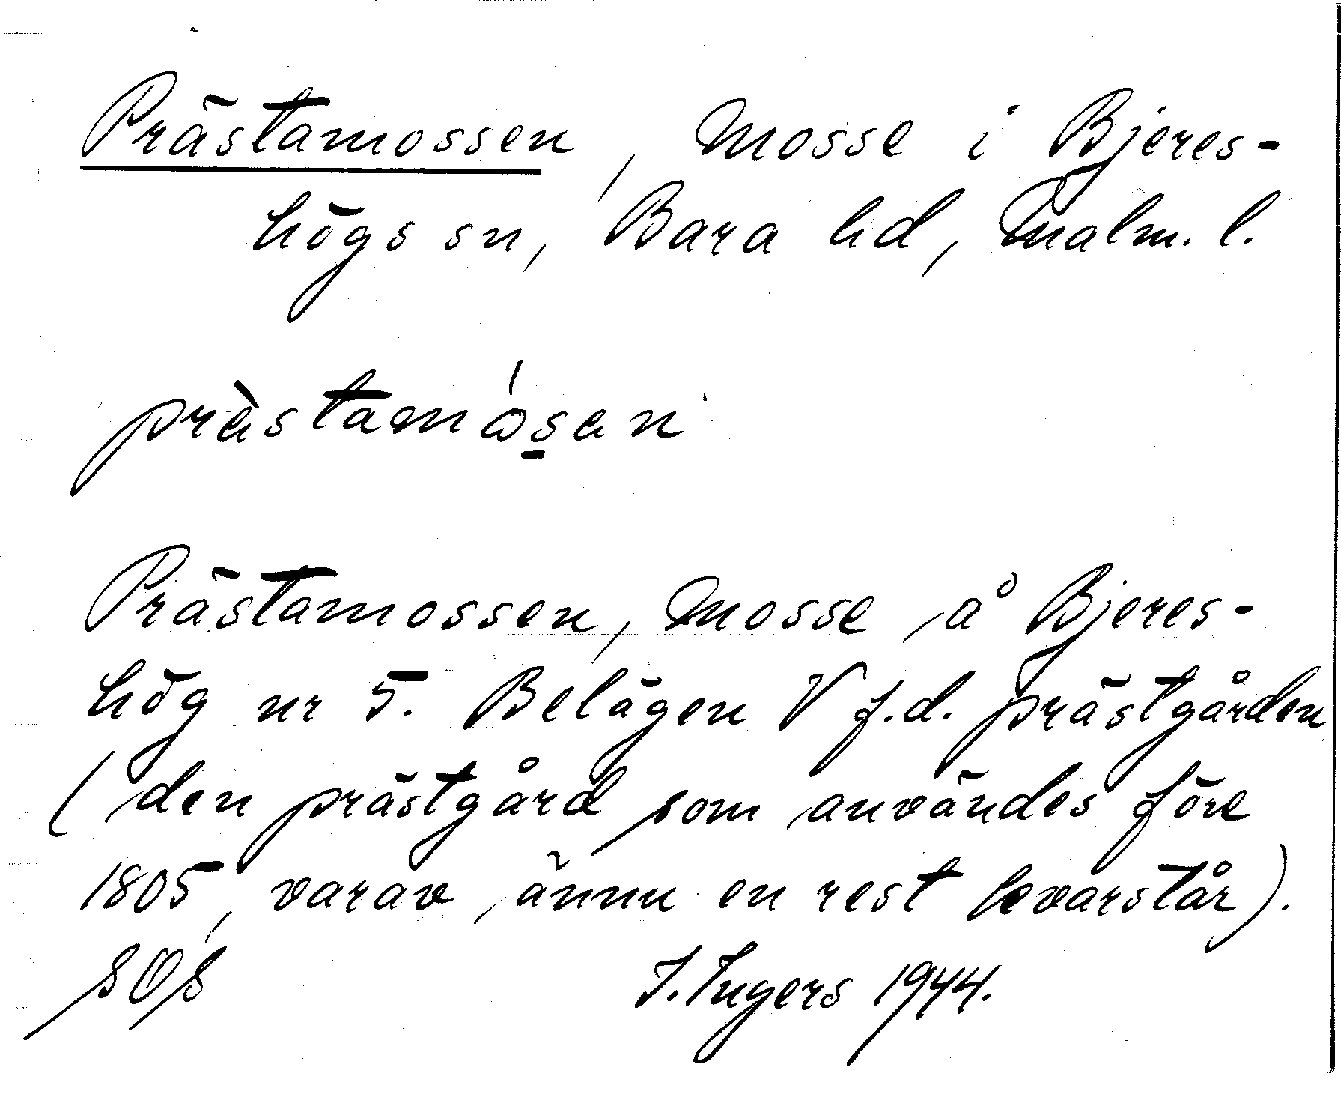 Prästamossen, Mosse i Bjeres-
högs sn, Bara hd, Malm. l.
prästamósen
Prästamossen, Mosse å Bjeres-
hög nr 5. Belägen V f.d. prästgården
(den prästgård som användes före
1805, varav ännu en rest kvarstår).
SOS I. Ingers 1944.